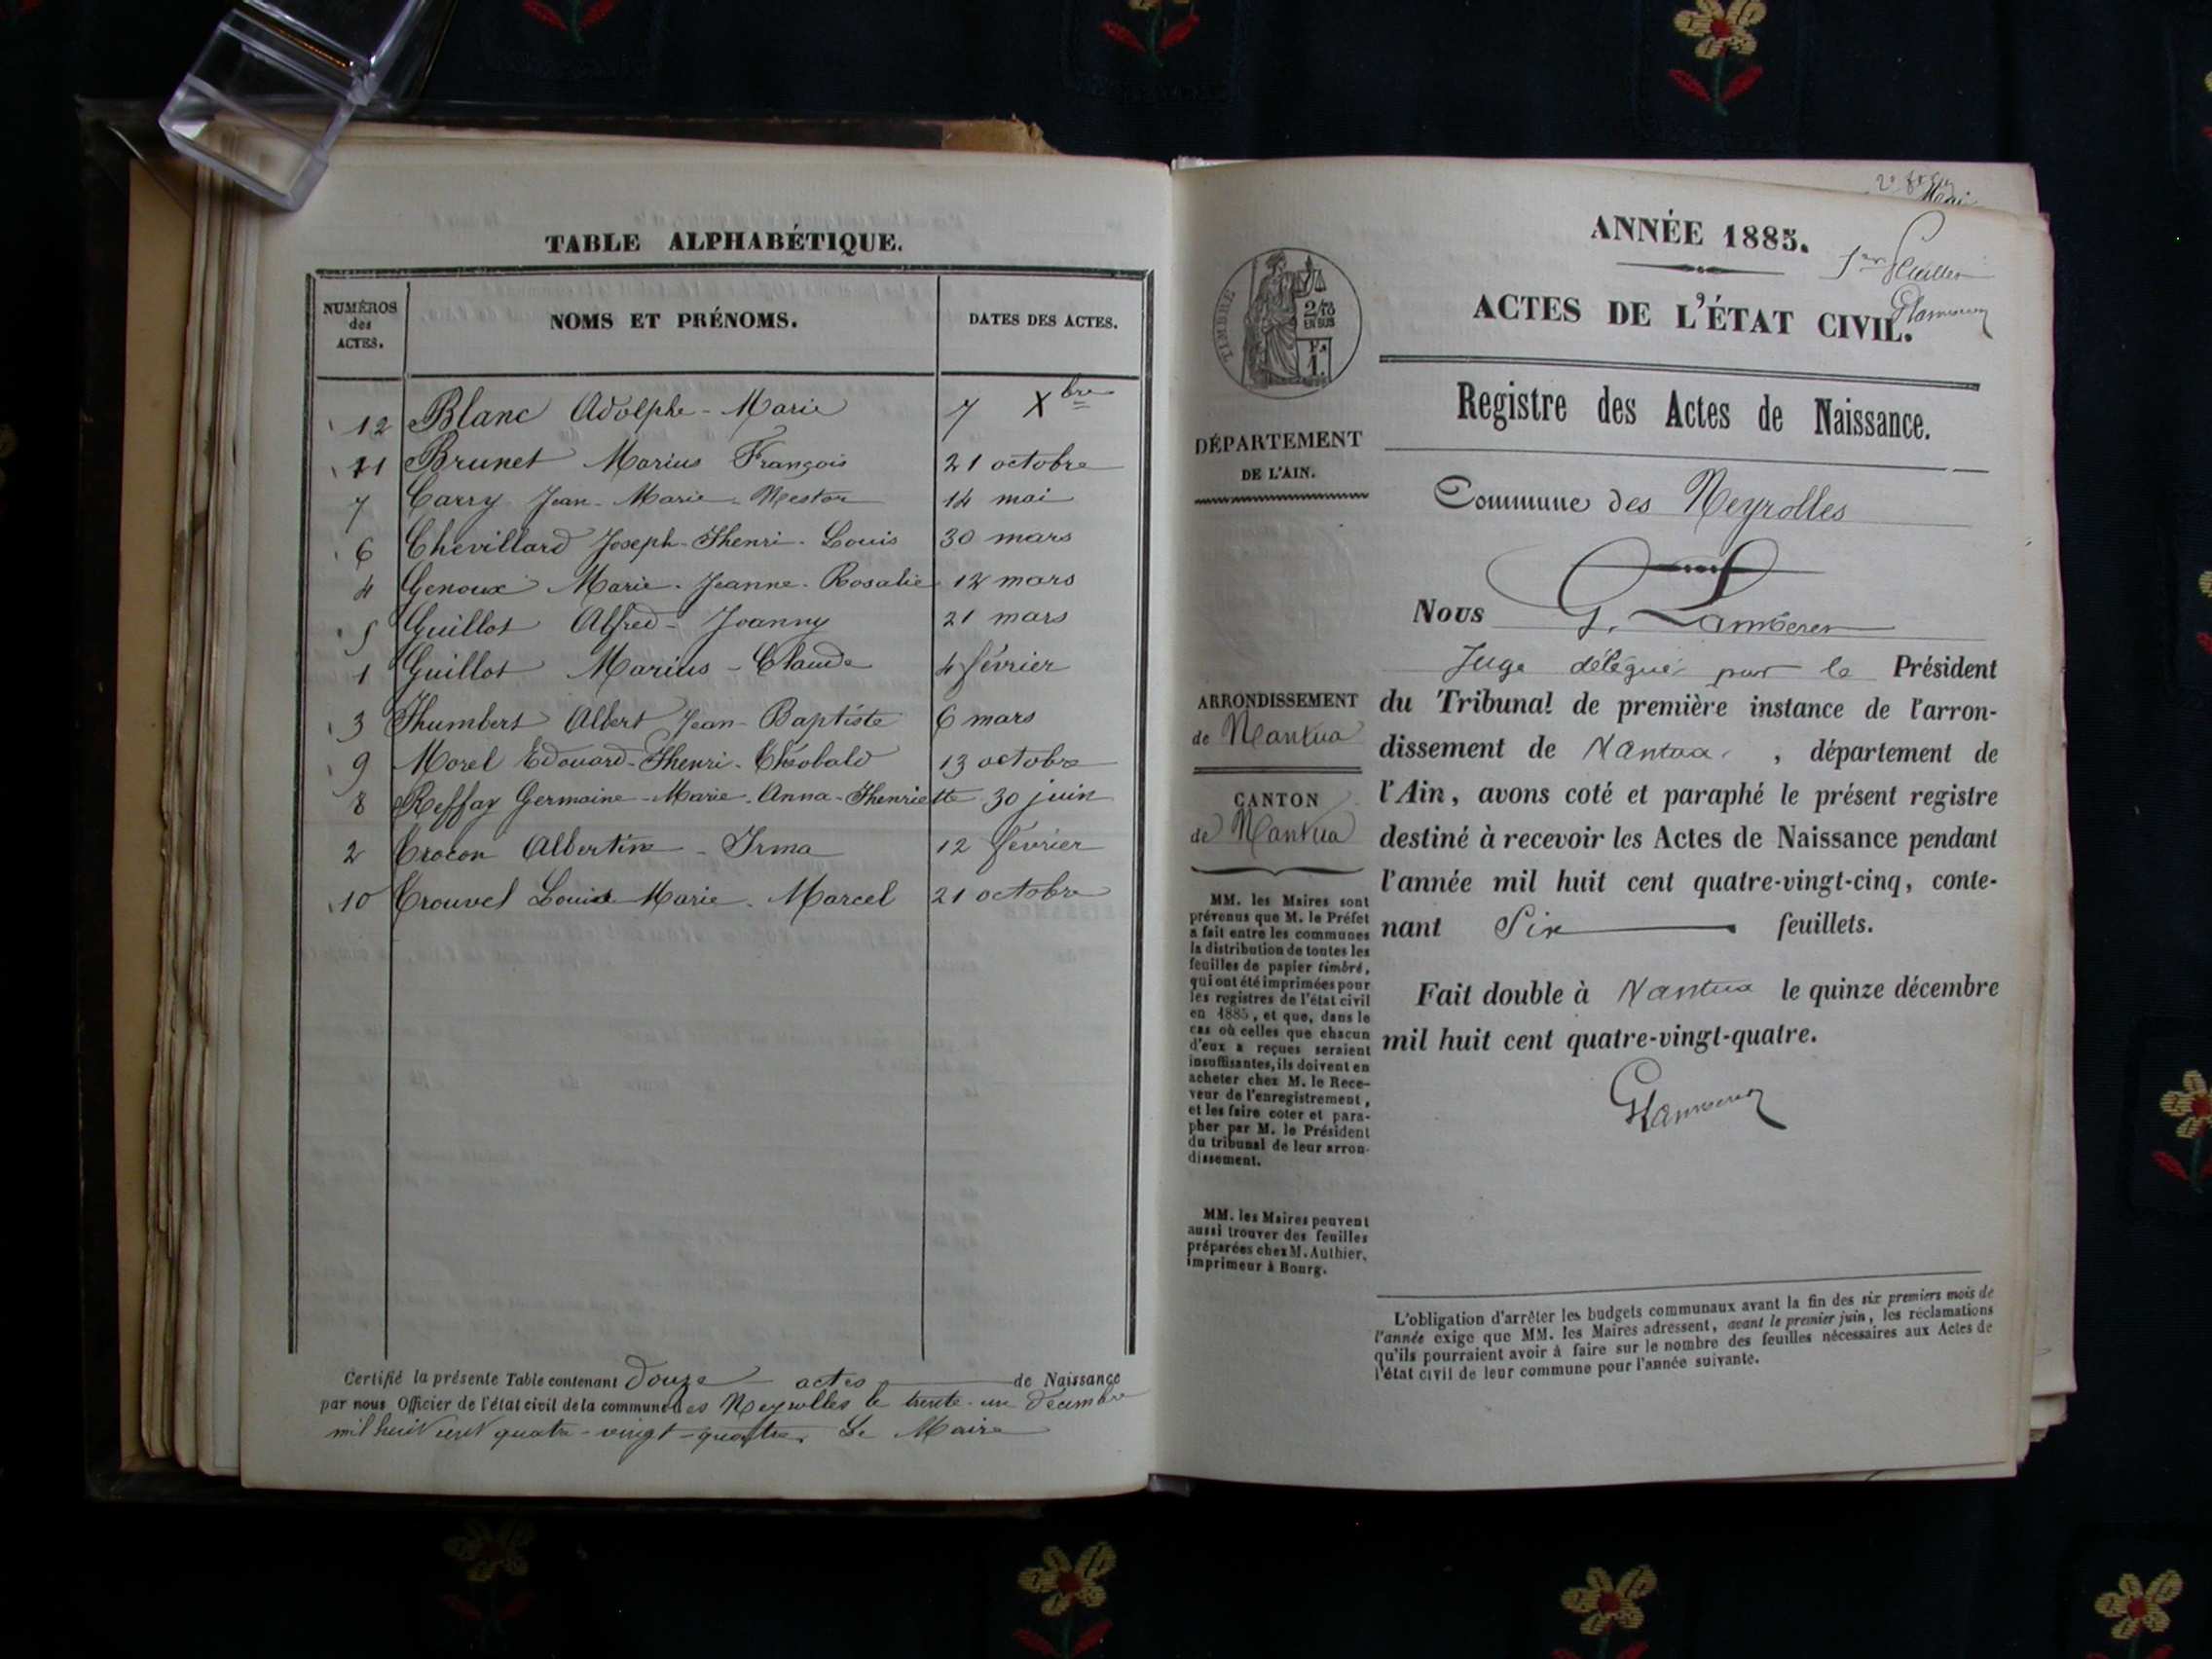 TABLE ALPHABÉTIQUE.
NUMÉROS des ACTES.
NOMS ET PRÉNOMS.
DATES DES ACTES.
12 Blanc Adolphe - Marie 7 Xbre
11 Brunet Marius François 21 octobre
7 Carry Jean - Marie - Nestor 14 mai
6 Chevillard Joseph - Henri - Louis 30 mars
4 Genoux Marie - Jeanne - Rosalie 12 mars
5 Guillot Alfred - Joanny 21 mars
1 Guillot Marius - Claude 4 février
3 Humbert Albert Jean - Baptiste 6 mars
9 Morel Edouard - Henri - Théobald 13 octobre
8 Reffay Germaine - Marie - Anna - Henriette 30 juin
2 Trocon Albertine - Irma 12 février
10 Trouvel Louis Marie - Marcel 21 octobre
Certifié la présente Table contenant Douze actes de Naissance
par nous Officier de l'état civil de la commune des Neyrolles le trente - un Décembre
mil huit cent quatre - vingt - quatre. Le Maire
ANNÉE 1885.
1er feuillet
ACTES DE L'ÉTAT CIVIL.
TIMBRE
2/10
EN SUS
Registre des Actes de Naissance.
DÉPARTEMENT
DE L'AIN.
Commune des Neyrolles
Nous G. Lamberet
Juge délégué par le Président
du Tribunal de première instance de l'arron-
dissement de Nantua , département de
l'Ain, avons coté et paraphé le présent registre
destiné à recevoir les Actes de Naissance pendant
l'année mil huit cent quatre-vingt-cinq, conte-
nant Six feuillets.
Fait double à Nantua le quinze décembre
mil huit cent quatre-vingt-quatre.
ARRONDISSEMENT
de Nantua
CANTON
de Nantua
MM. les Maires sont
prévenus que M. le Préfet
a fait entre les communes
la distribution de toutes les
feuilles de papier timbré,
qui ont été imprimées pour
les registres de l'état civil
en 1885, et que, dans le
cas où celles que chacun
d'eux a reçues seraient
insuffisantes, ils doivent en
acheter chez M. le Rece-
veur de l'enregistrement,
et les faire coter et para-
pher par M. le Président
du tribunal de leur arron-
dissement.
MM. les Maires peuvent
aussi trouver des feuilles
préparées chez M. Authier,
imprimeur à Bourg.
L'obligation d'arrêter les budgets communaux avant la fin des six premiers mois de
l'année exige que MM. les Maires adressent, avant le premier juin, les réclamations
qu'ils pourraient avoir à faire sur le nombre des feuilles nécessaires aux Actes de
l'état civil de leur commune pour l'année suivante.